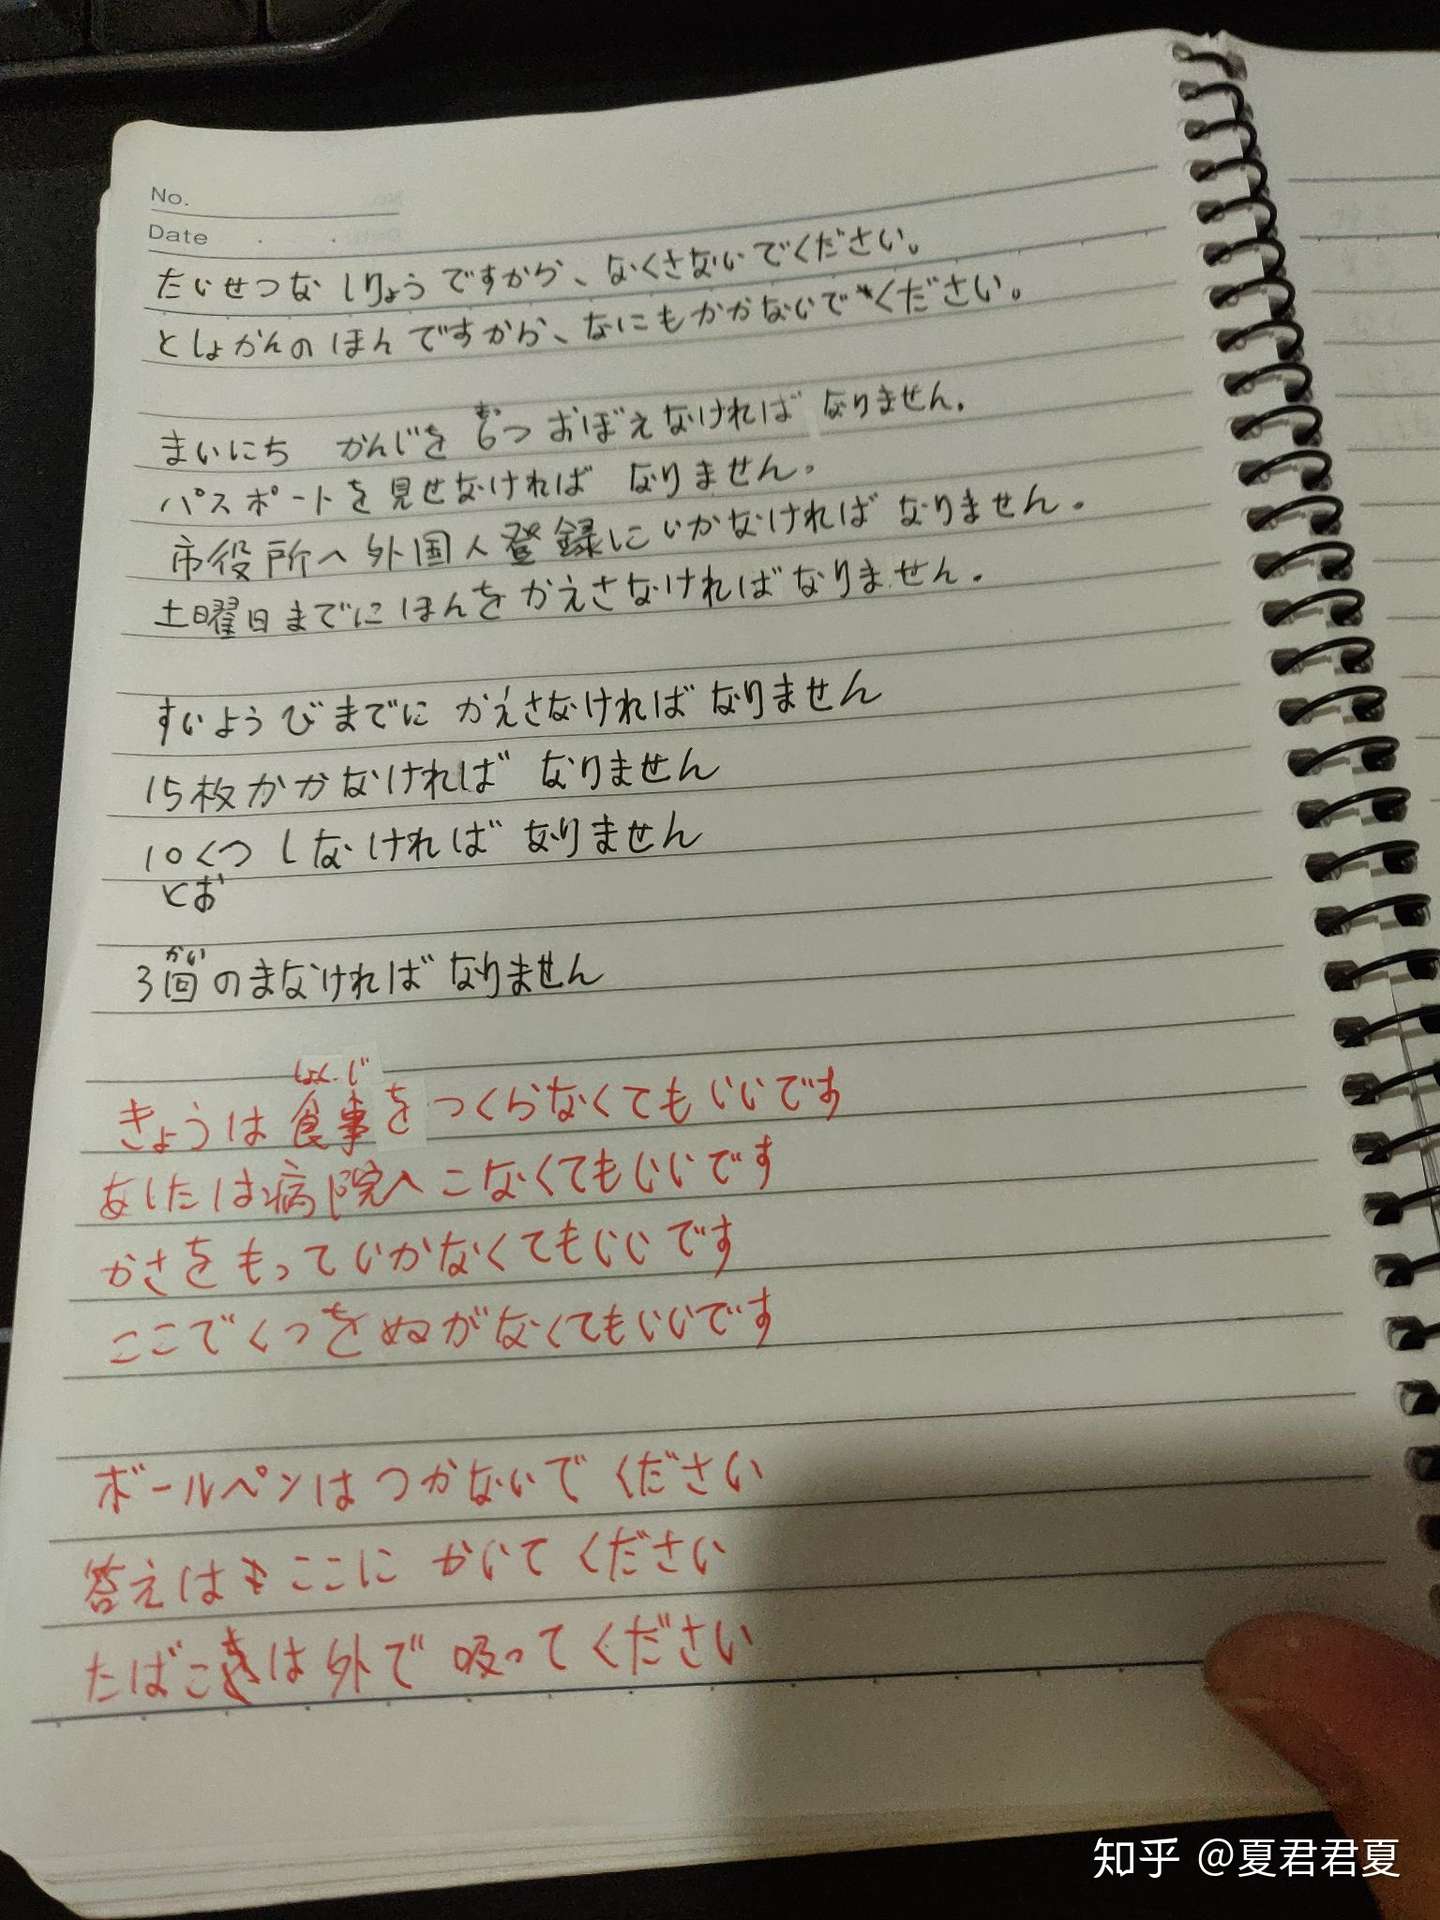 No.
Date
たいせつな しりょうですから、なくさないでください。
としょかんの ほんですから、なにもかかないでください。
まいにち かんじを 6つ おぼえなければ なりません。
パスポートを 見せなければ なりません。
市役所へ外国人登録にいかなければ なりません。
土曜日までにほんを かえさなければなりません。
すいようびまでに かえさなければ なりません
15枚かかなければ なりません
10くつ しなければ なりません
とお
かい
3回のまなければ なりません
しょくじ
きょうは食事を つくらなくてもいいです
あしたは病院へ こなくてもいいです
かさをもっていかなくてもいいです
ここでくつをぬがなくてもいいです
ボールペンは つかないで ください
答えは ここに かいて ください
たばこは外で 吸ってください
知乎 @夏君君夏